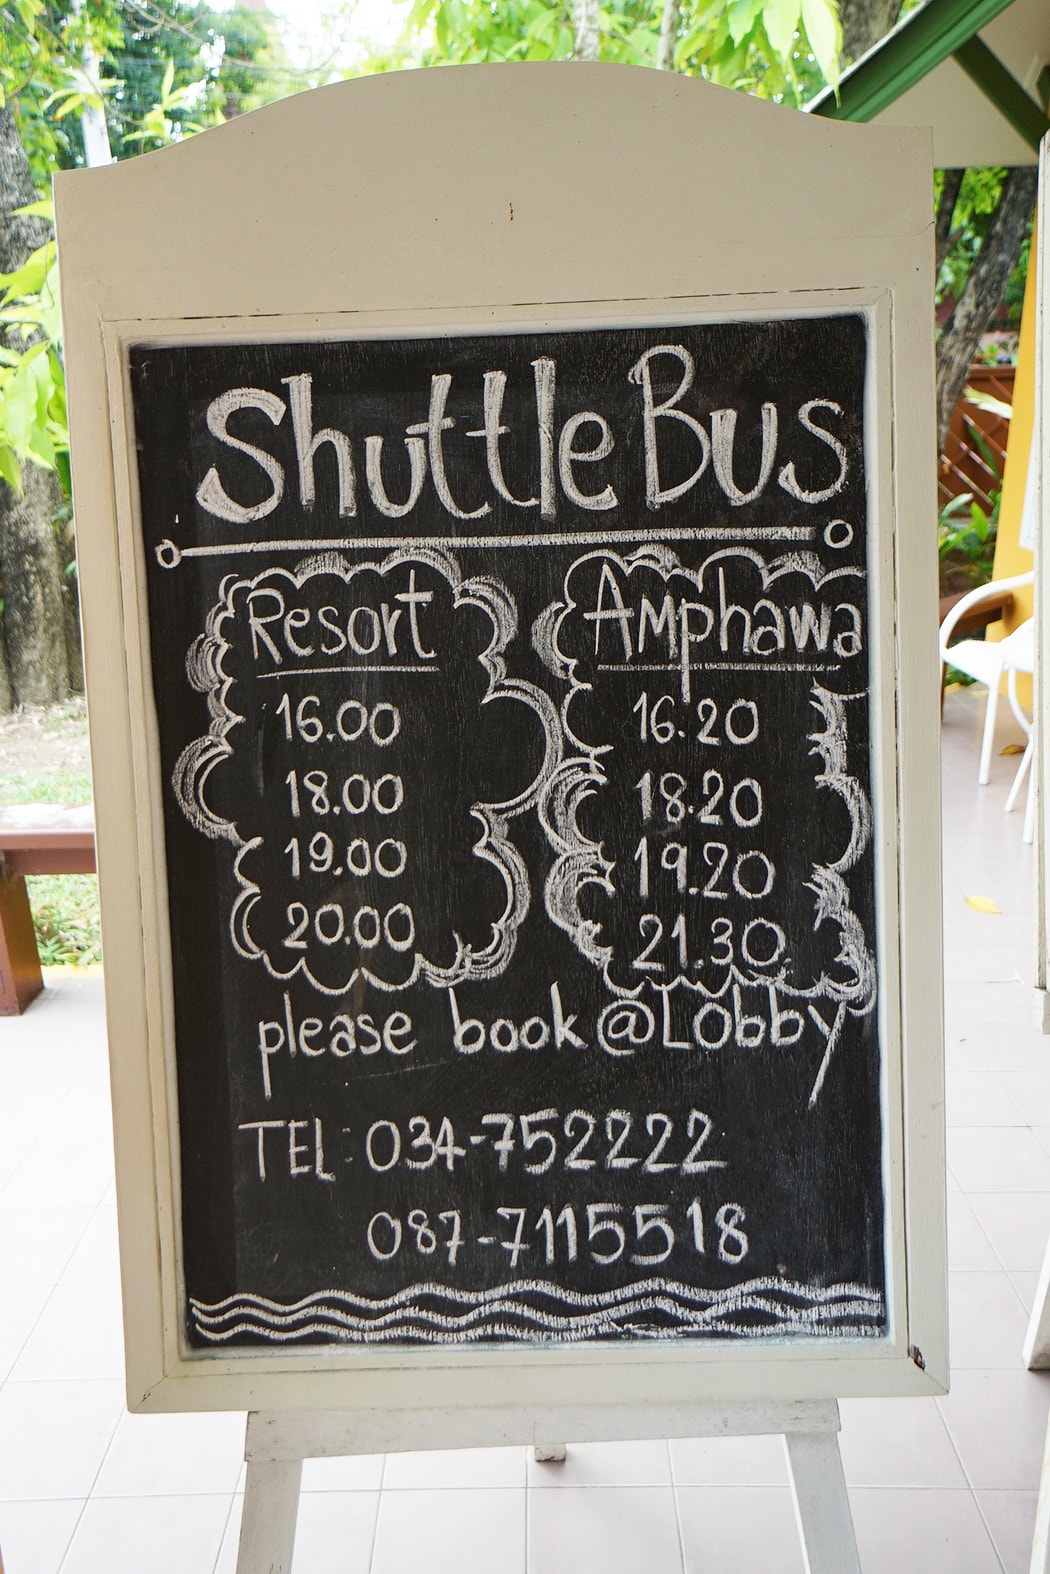 Shuttle Bus
Resort Amphawa
16.00 16.20
18.00 18.20
19.00 19.20
20.00 21.30
please book @Lobby
TEL: 034-752222
087-7115518